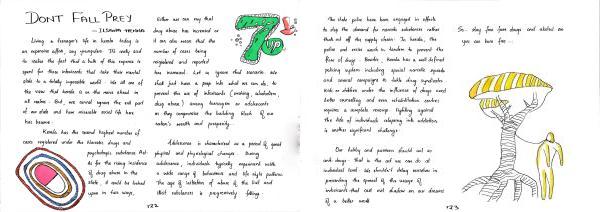 DON'T FALL PREY
Living a teenager's life in Kerala today is
an expensive affair, say youngsters. It's really sad
to realise the fact that a bulk of this expense is
spent for these intoxicants that take their mental
state to a totally impossible world. We all are of
the view that Kerala is on the move ahead in
all realms. But, we cannot ignore the evil part
of our state and how miserable social life here
has become.
Kerala has the second highest number of
cases registered under the Narcotic drugs and
psychotropic substance Act.
As for the rising incidence
of drug abuse in the
state, it could be looked
upon in two ways,
Either we can say that
drug abuse has increased or
it can also mean that the
number of cases being
registered and reported
has increased. Let us ignore that scenario. We
shall just have a peep into what we can do, to
prevent the use of intoxicants (involving alcoholism,
drug abuse) among teenagers or adolescents
as they compromise the building block of our
nation's wealth and prosperity.
Adolescence is characterised as a period of good
physical and physiological changes. During
adolescence, individuals typically experiment with
a wide range of behaviours and life style patterns.
The age of initiation of abuse of the licit and
illicit substances is progressively falling.
7
up
122
The state police have been engaged in efforts
to stop the demand for narcotic substances rather
than cut off the supply chain. In Kerala, the
police and excise work in tandem to prevent the
flow of drugs. Besides, Kerala has a well defined
policing system including special narcotic squads
and several campaigns to tackle drug syndicates.
Kids or children under the influence of drugs need
better counselling and even rehabilitation centres
requires a complete revamp. Fighting against
the tide of individuals relapsing into addiction
is another significant challenge.
Our family and parents should act as
anti-drugs. That is the act we can do at
individual level. We shouldn't delay ourselves in
preventing the spread of the usage of
intoxicants that cast out shadow on our dreams
of a better world.
So, stay free from drugs and alcohol as
you can live free...
123